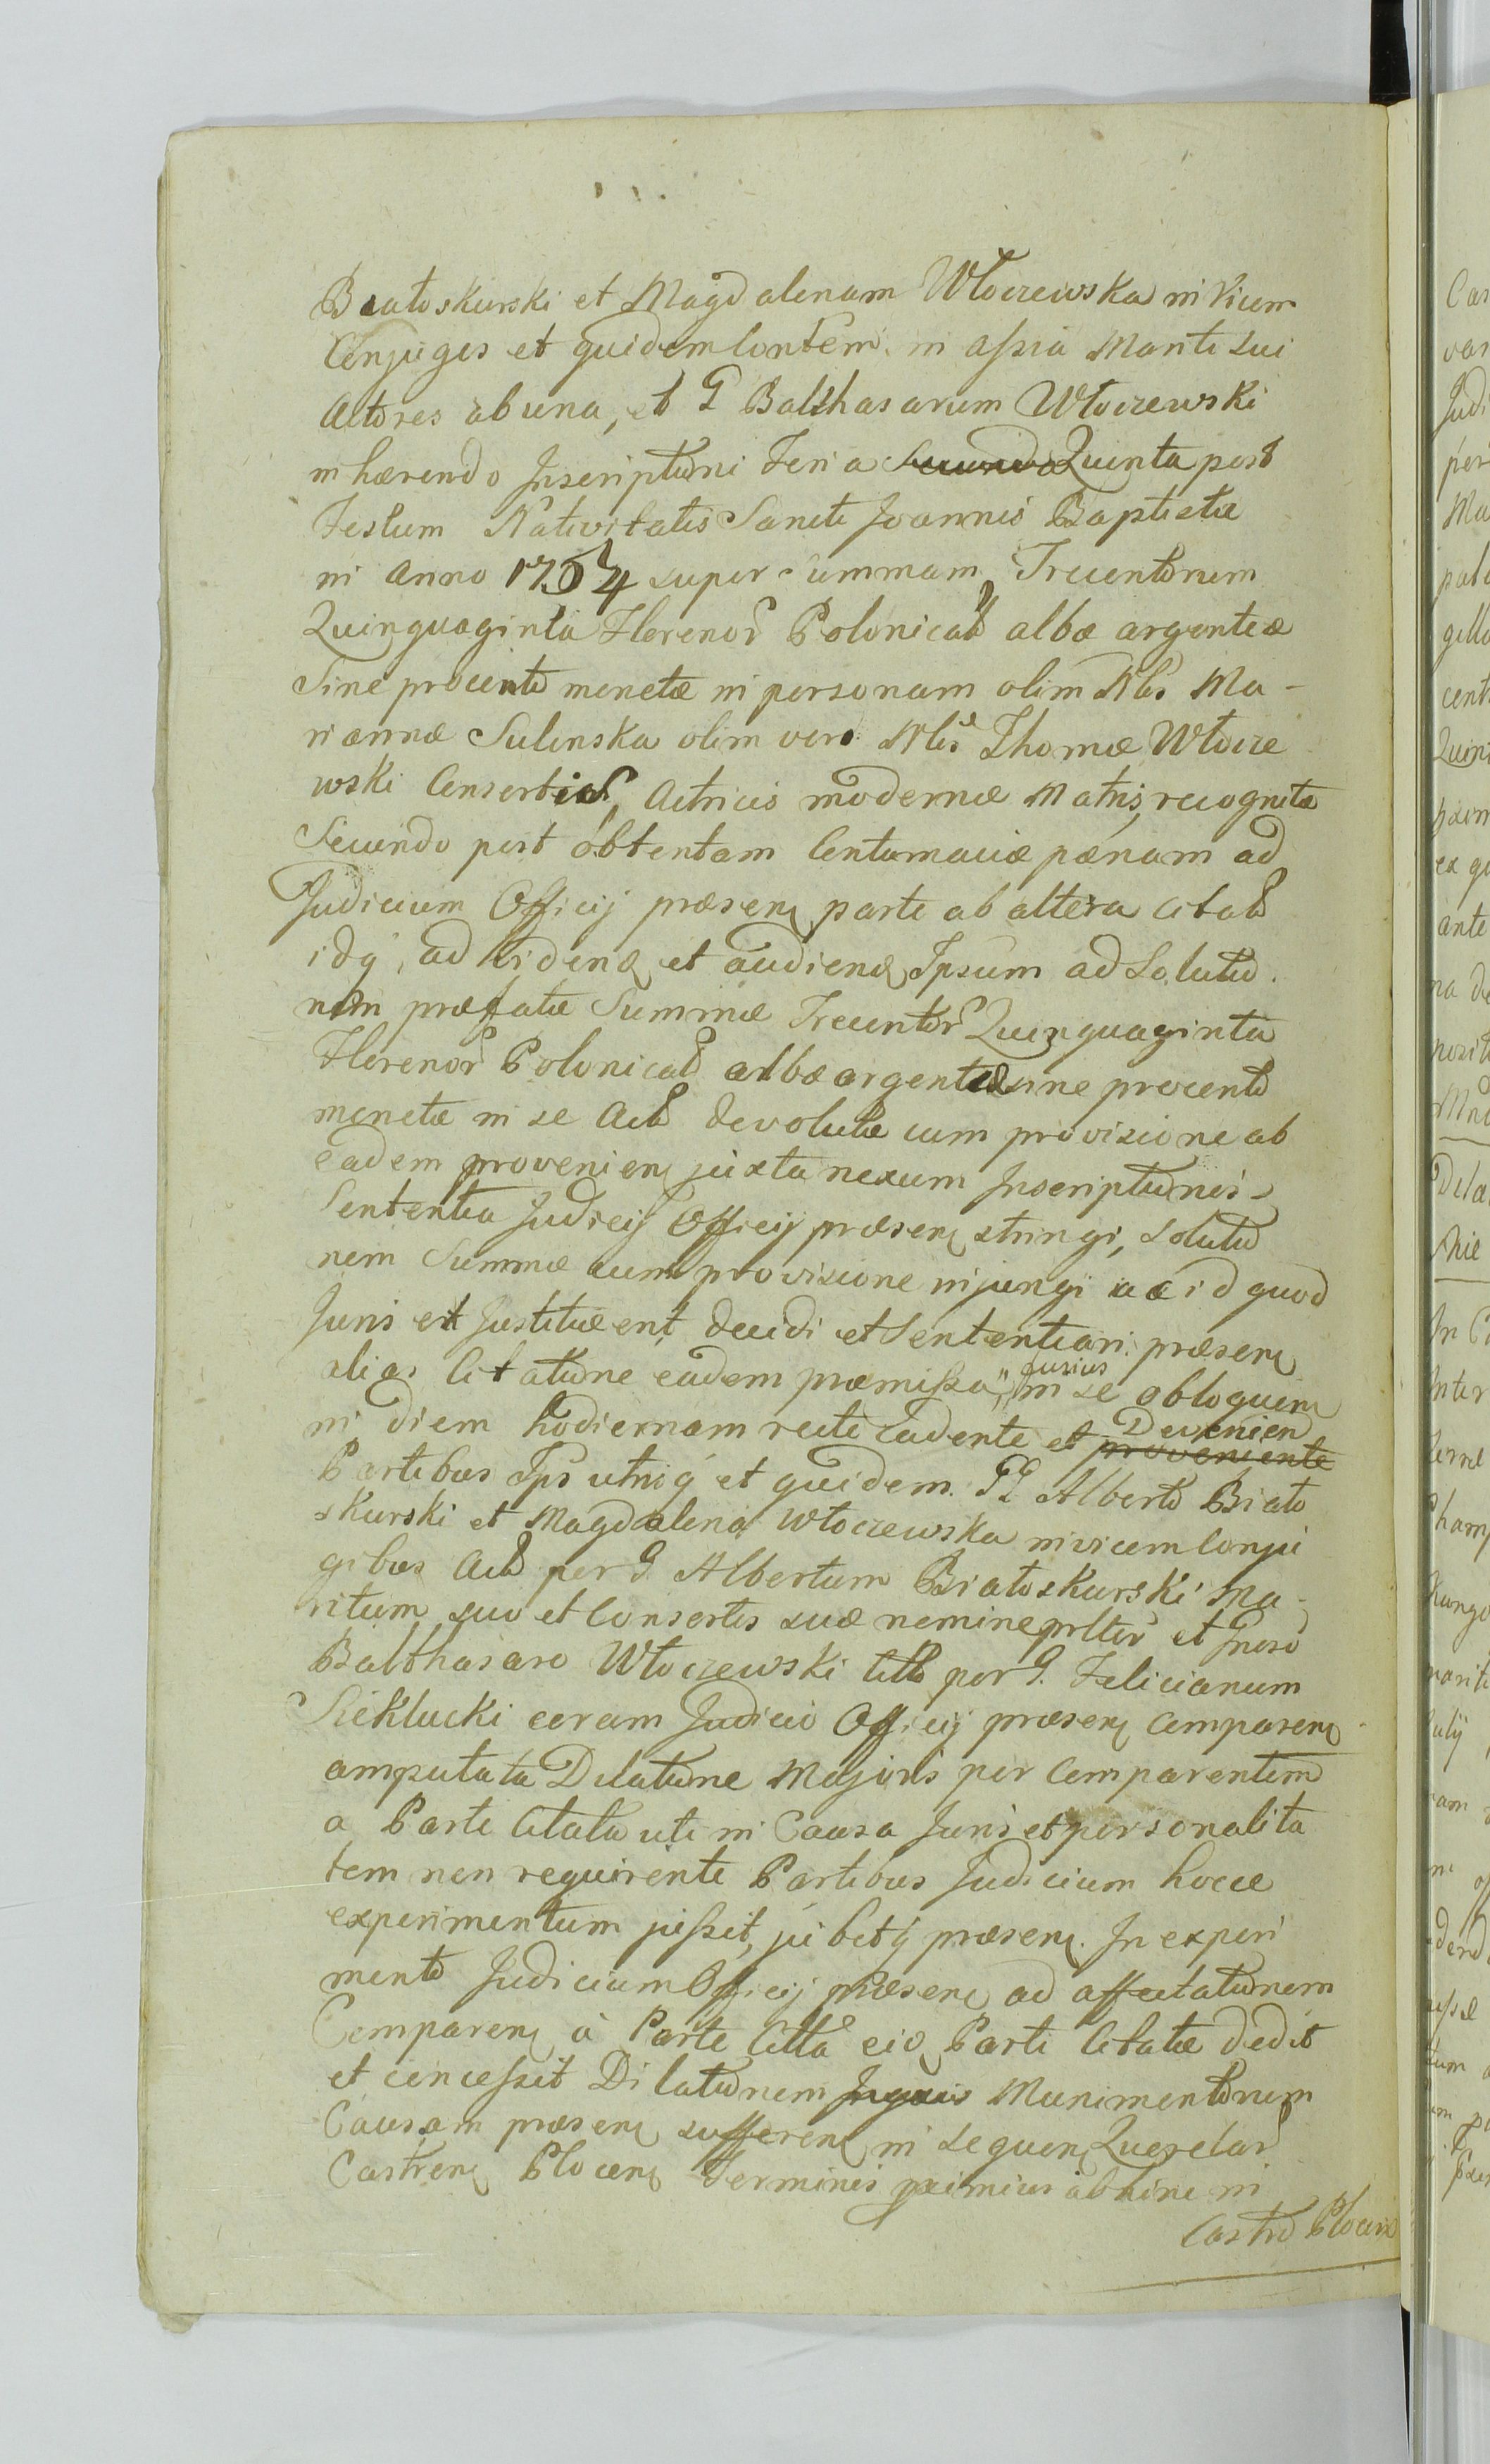 Białoskurski et Magdalenam Włoczewska in vicem
Conjuges et quidem Contem. in assia Mariti sui
Actores ab una, et G Balthasarum Włoczewski
inhærendo Inscriptioni Feria Secunda Quinta post
Festum Nativitatis Sancti Joannis Baptistæ
in Anno 1754 super summam Trecentorum
Quinquaginta Florenor Polonical albæ argenteæ
sine procento monetæ in personam olim Nlis Ma-
riannæ Sulinska olim vero Nlis Thomæ Włocze
wski Consortis, Actricis modernæ Matris, recognitæ
Secundo post obtentam Contumaciæ pænam ad
Judicium Officij præsen parte ab altera Citat
idq, ad vidend et audiend Ipsum ad Solutio.
nem præfatæ Summæ Trecentor Quinquaginta
Florenor Polonical albæ argenteæ sine procento
monetæ in se Act devolutæ cum provisione ab
eadem provenien juxta nexum Inscriptionis
Sententia Judicij Officij præsen stringi, solutio
nem Summæ cum provisione injungi ac id quod
Juris et Justitiæ erit decidi et Sententiari præsen
alias Citatione eadem præmissa, fusius in se obloquen
in diem hodiernam recte cadente et provenjente Devenien
Partibus Ips utriq et quidem. GG Alberto Biało
skurski et Magdalena Włoczewska invicem Conju
gibus Act per G Albertum Białoskurski Ma-
ritum suo et Consortis suæ nomine prlter et Gnoso
Balthasaro Włoczewski Citto per G. Felicianum
Sieklucki coram Judicio Officij præsen Comparen
amputata Dilatione Majoris per Comparentem
a Parte Citata uti in Causa Juris et personalita
tem non requirente Partibus Judicium hocce
experimentum jussit, jubetq præsen. In experi
mento Judicium Officij præsen ad affectationem
Comparen à Parte Citta eid Parti Citatæ dedit
et concessit Dilationem Munimentorum
Causam præsen sufferen in sequen Querelar
Castren Plocen Terminis proximius abhinc in
Castro Plocen